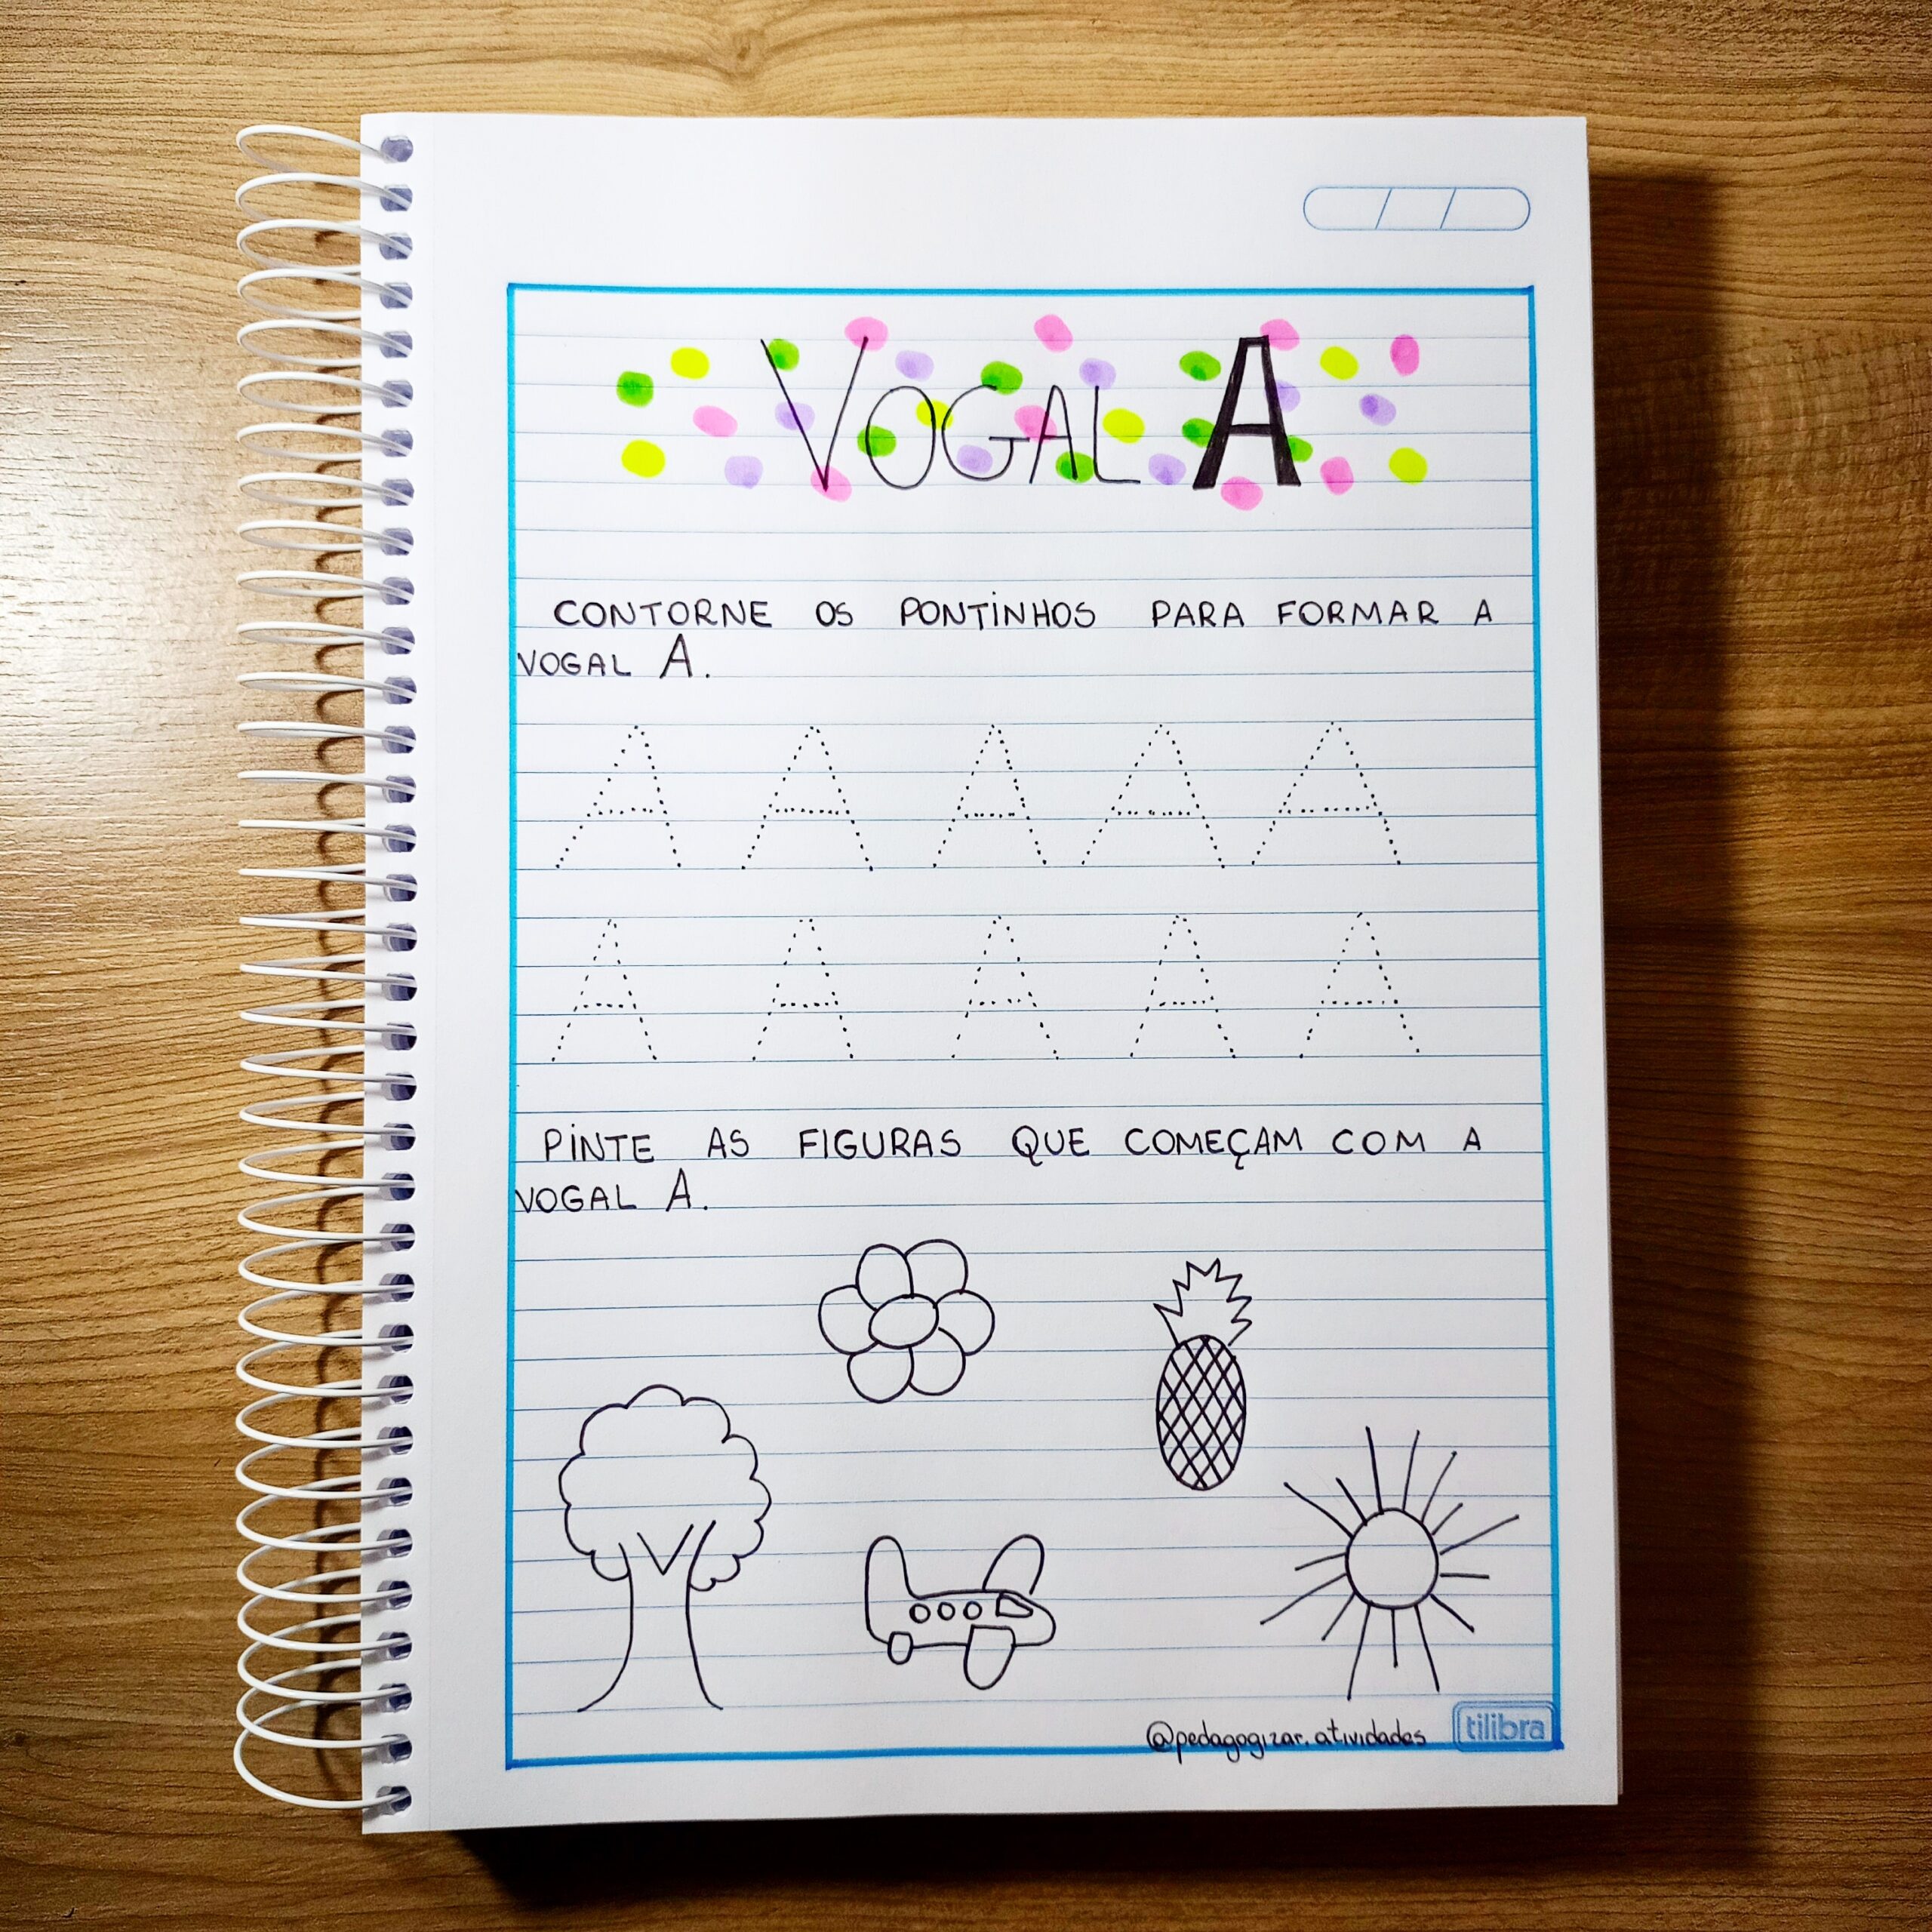 VOGAL A
CONTORNE OS PONTINHOS PARA FORMAR A
VOGAL A.
A A A A A
A A A A A
PINTE AS FIGURAS QUE COMEÇAM COM A
VOGAL A.
@pedagogizar.atividades
tilibra